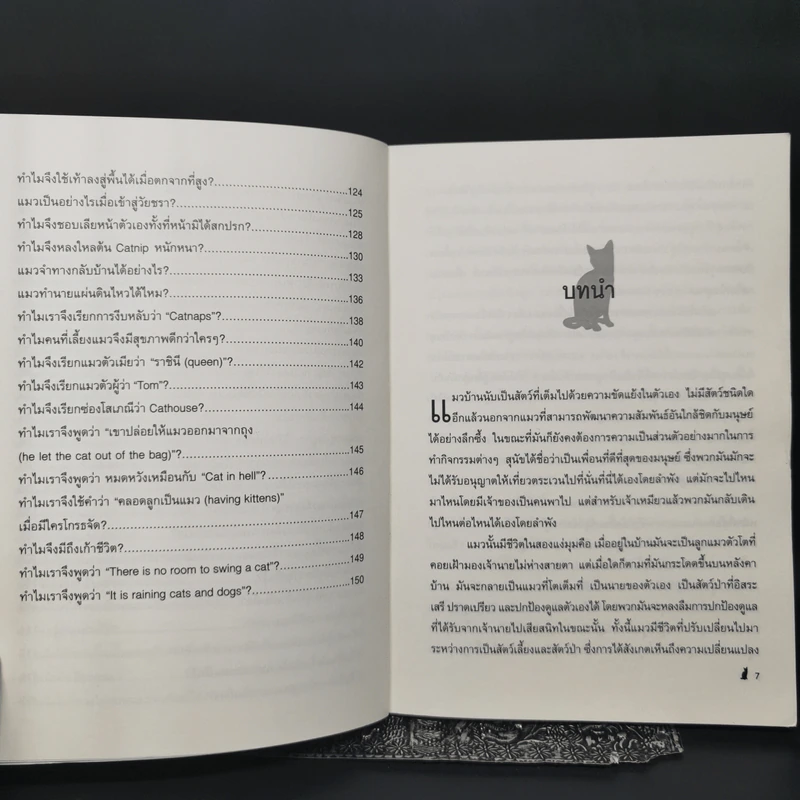 ทำไมจึงใช้เท้าลงสู่พื้นได้เมื่อตกจากที่สูง?....................124
แมวเป็นอย่างไรเมื่อเข้าสู่วัยชรา?....................125
ทำไมจึงชอบเลียหน้าตัวเองทั้งที่หน้ามิได้สกปรก?....................128
ทำไมจึงหลงใหลต้น Catnip หนักหนา?....................130
แมวจำทางกลับบ้านได้อย่างไร?....................133
แมวทำนายแผ่นดินไหวได้ไหม?....................136
ทำไมเราจึงเรียกการงีบหลับว่า “Catnaps”?....................138
ทำไมคนที่เลี้ยงแมวจึงมีสุขภาพดีกว่าใครๆ?....................140
ทำไมจึงเรียกแมวตัวเมียว่า “ราชินี (queen)”?....................142
ทำไมจึงเรียกแมวตัวผู้ว่า “Tom”?....................143
ทำไมจึงเรียกซ่องโสเภณีว่า Cathouse?....................144
ทำไมเราจึงพูดว่า “เขาปล่อยให้แมวออกมาจากถุง
(he let the cat out of the bag)”?....................145
ทำไมจึงพูดว่า หมดหวังเหมือนกับ “Cat in hell”?....................146
ทำไมเราจึงใช้คำว่า “คลอดลูกเป็นแมว (having kittens)”
เมื่อมีใครโกรธจัด?....................147
ทำไมจึงมีถึงเก้าชีวิต?....................148
ทำไมเราจึงพูดว่า “There is no room to swing a cat”?....................149
ทำไมเราจึงพูดว่า “It is raining cats and dogs”?....................150
บทนำ
แมวบ้านนับเป็นสัตว์ที่เต็มไปด้วยความขัดแย้งในตัวเอง ไม่มีสัตว์ชนิดใด
อีกแล้วนอกจากแมวที่สามารถพัฒนาความสัมพันธ์อันใกล้ชิดกับมนุษย์
ได้อย่างลึกซึ้ง ในขณะที่มันก็ยังคงต้องการความเป็นส่วนตัวอย่างมากในการ
ทำกิจกรรมต่างๆ สุนัขได้ชื่อว่าเป็นเพื่อนที่ดีที่สุดของมนุษย์ ซึ่งพวกมันมักจะ
ไม่ได้รับอนุญาตให้เที่ยวตระเวนไปที่นั่นที่นี่ได้เองโดยลำพัง แต่มักจะไปไหน
มาไหนโดยมีเจ้าของเป็นคนพาไป แต่สำหรับเจ้าเหมียวแล้วพวกมันกลับเดิน
ไปไหนต่อไหนได้เองโดยลำพัง
แมวนั้นมีชีวิตในสองแง่มุมคือ เมื่ออยู่ในบ้านมันจะเป็นลูกแมวตัวโตที่
คอยเฝ้ามองเจ้านายไม่ห่างสายตา แต่เมื่อใดก็ตามที่มันกระโดดขึ้นบนหลังคา
บ้าน มันจะกลายเป็นแมวที่โตเต็มที่ เป็นนายของตัวเอง เป็นสัตว์ป่าที่อิสระ
เสรี ปราดเปรียว และปกป้องดูแลตัวเองได้ โดยพวกมันจะหลงลืมการปกป้องดูแล
ที่ได้รับจากเจ้านายไปเสียสนิทในขณะนั้น ทั้งนี้แมวมีชีวิตที่ปรับเปลี่ยนไปมา
ระหว่างการเป็นสัตว์เลี้ยงและสัตว์ป่า ซึ่งการได้สังเกตเห็นถึงความเปลี่ยนแปลง
7